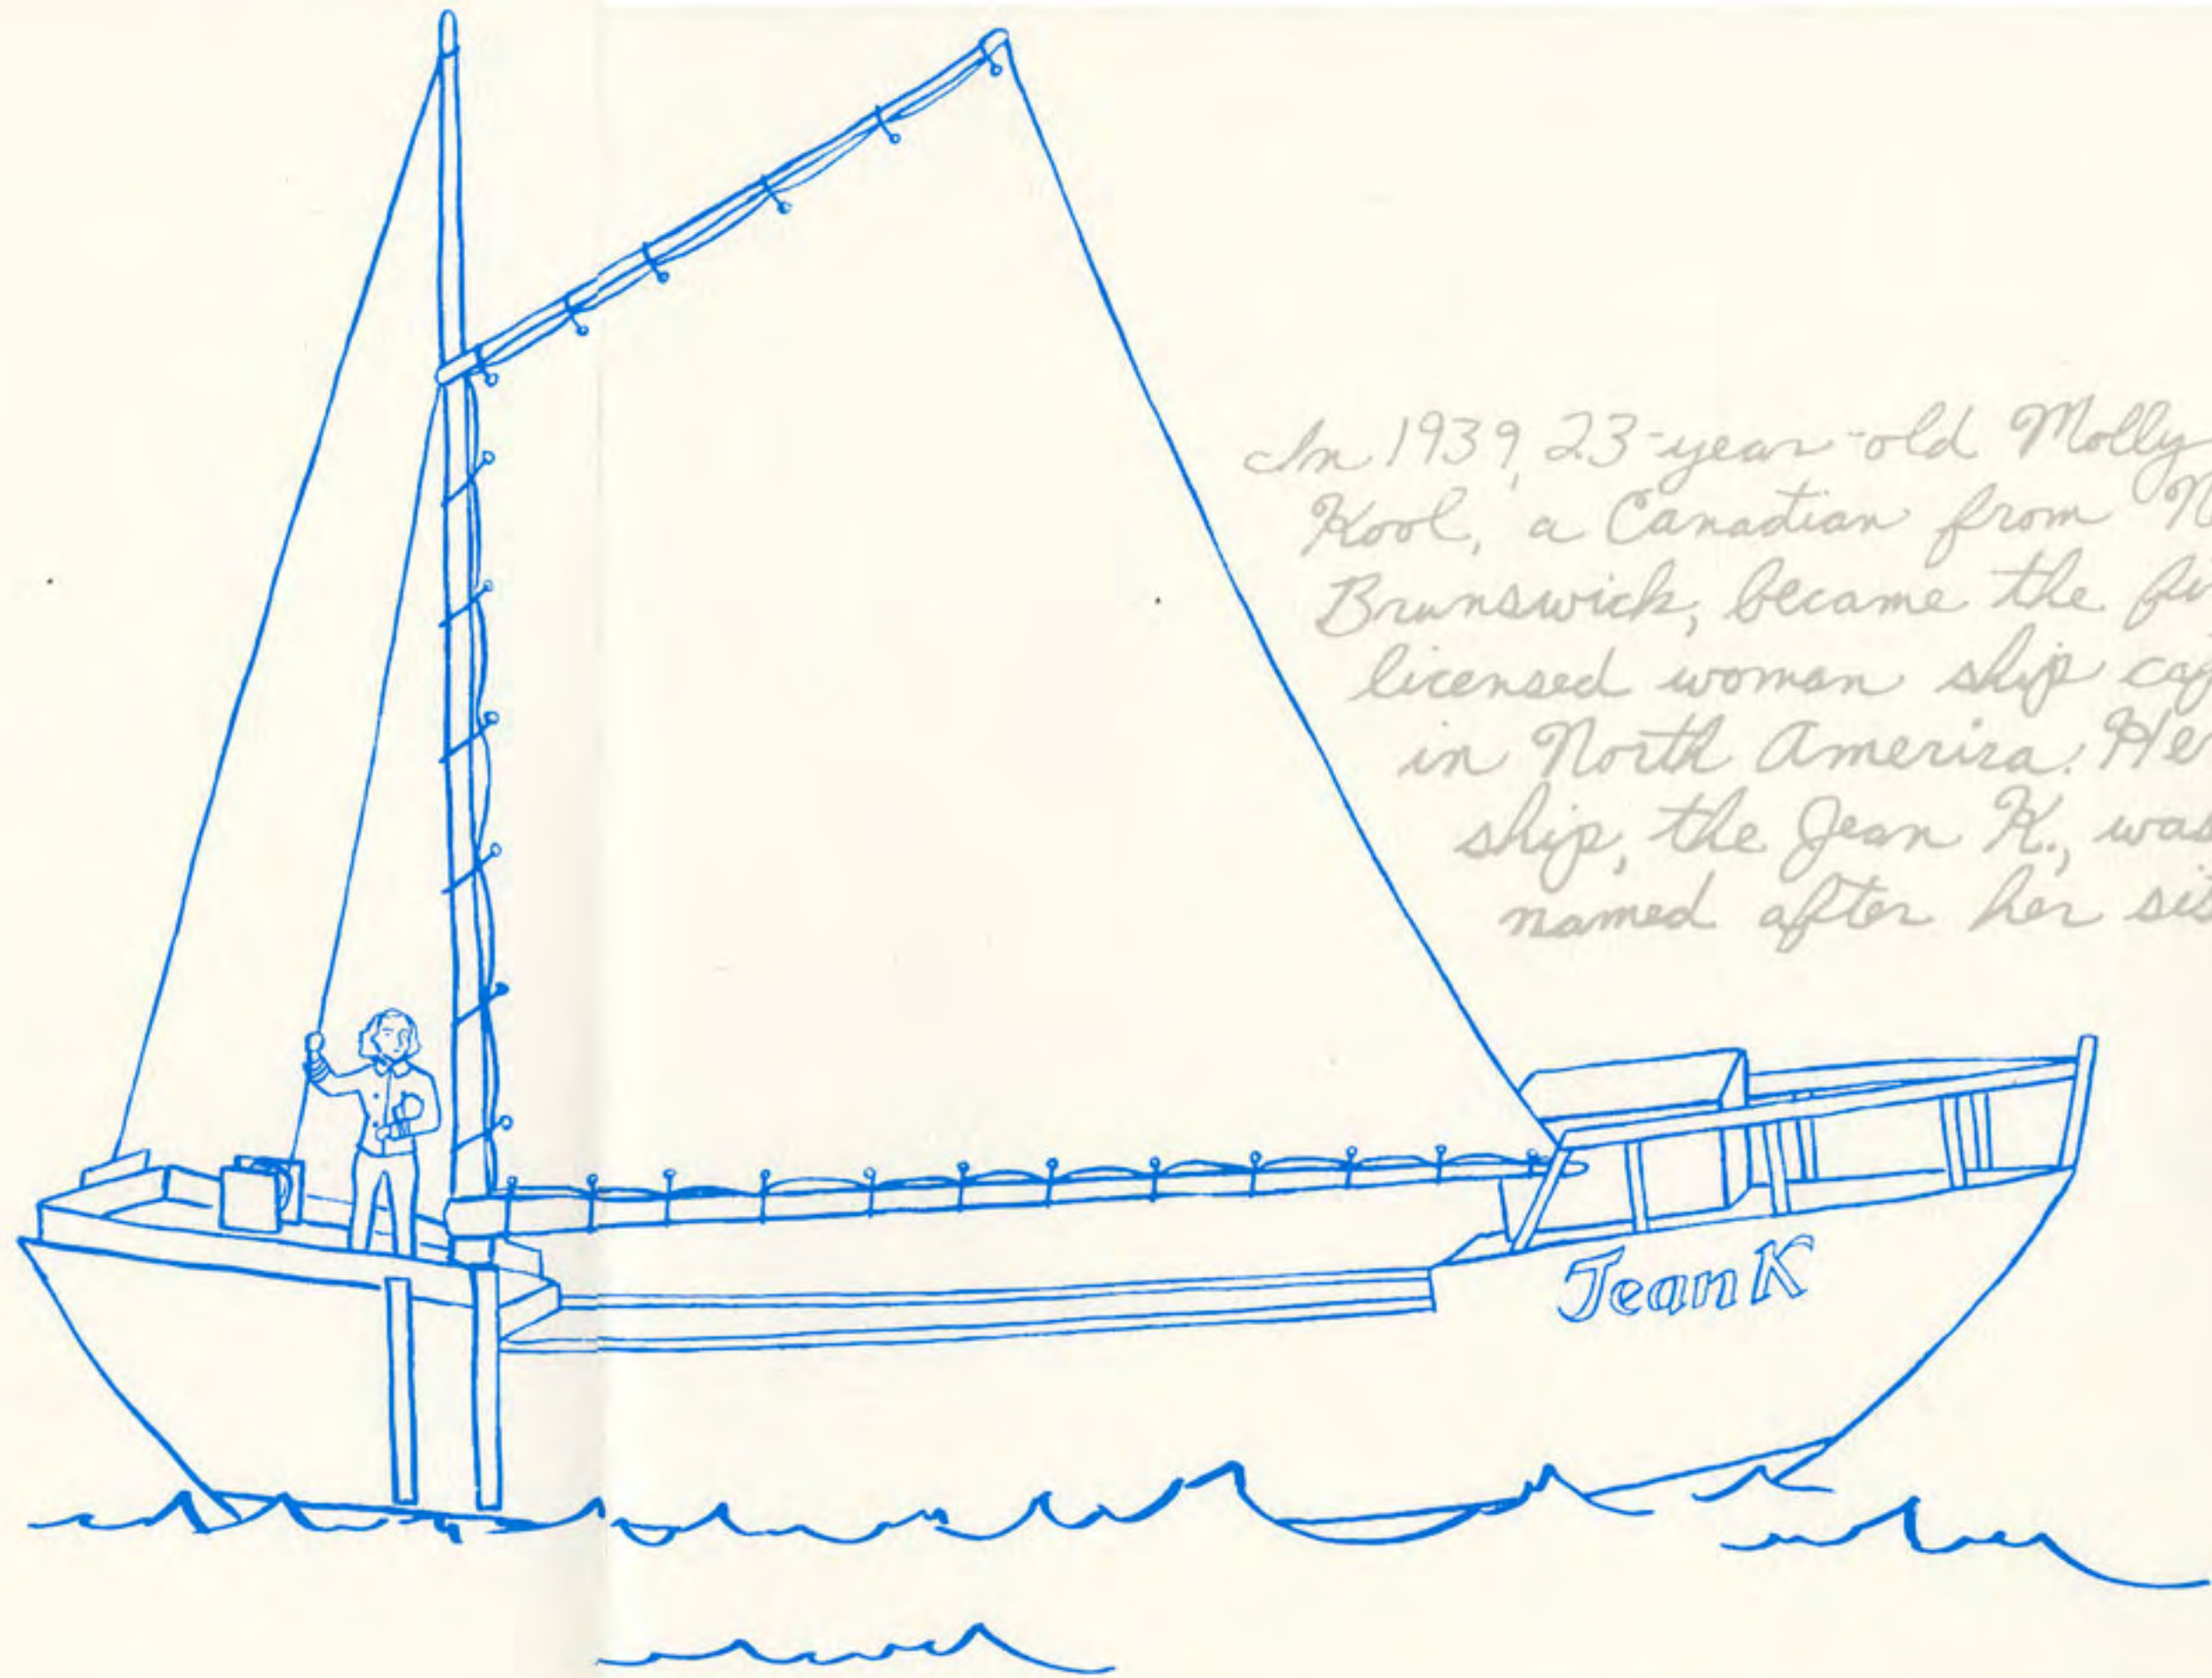 In 1939, 23-year-old Molly
Kool, a Canadian from
Brunswick, became the
licensed woman ship
in North America. Her
ship, the Jean K., was
named after her
Jean K